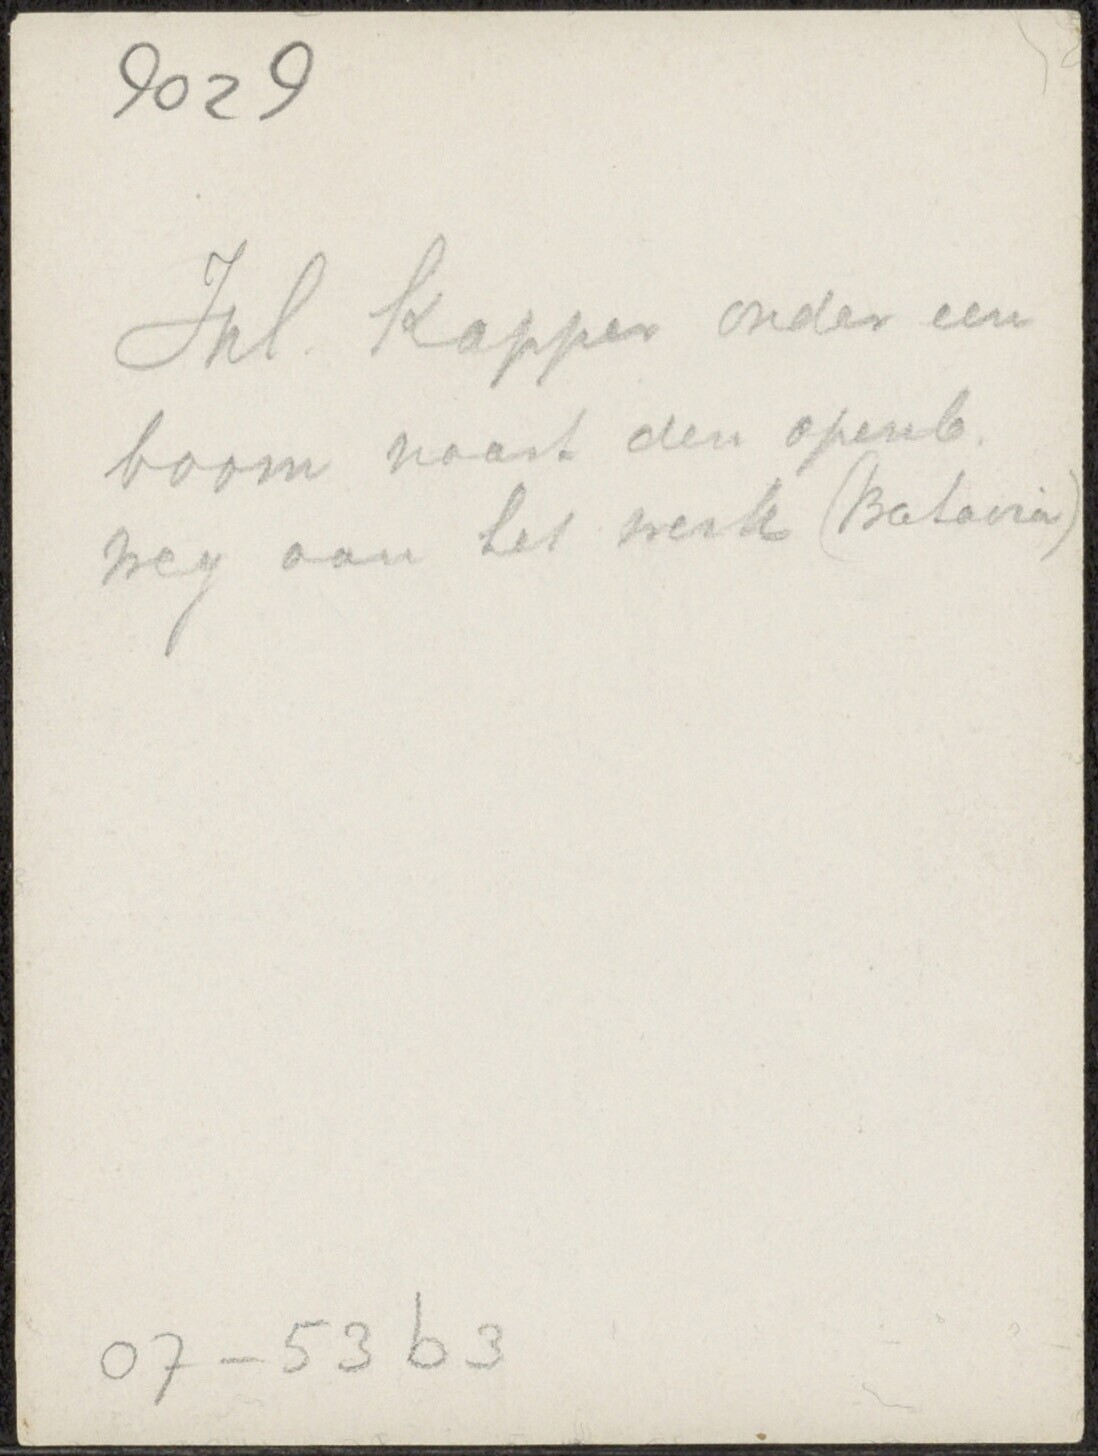 9029
Inl. Kapper onder een
boom naast den openb.
weg aan het werk (Batavia)
07-53b3